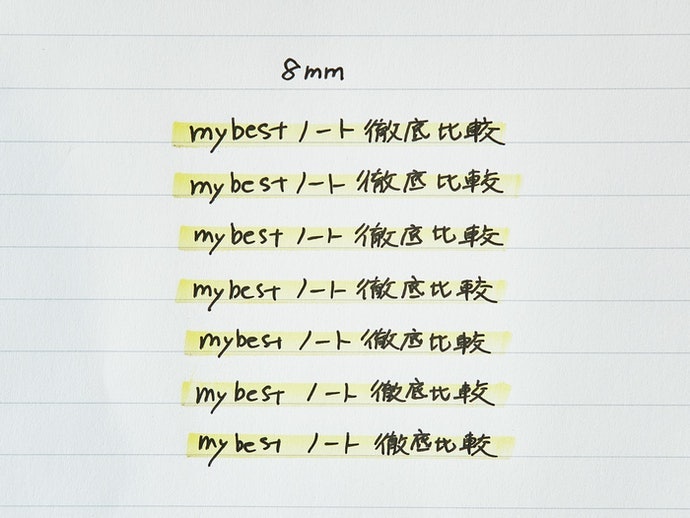 8mm
mybest ノート 徹底比較
mybest ノート 徹底比較
mybest ノート 徹底比較
mybest ノート 徹底比較
mybest ノート 徹底比較
mybest ノート 徹底比較
mybest ノート 徹底比較